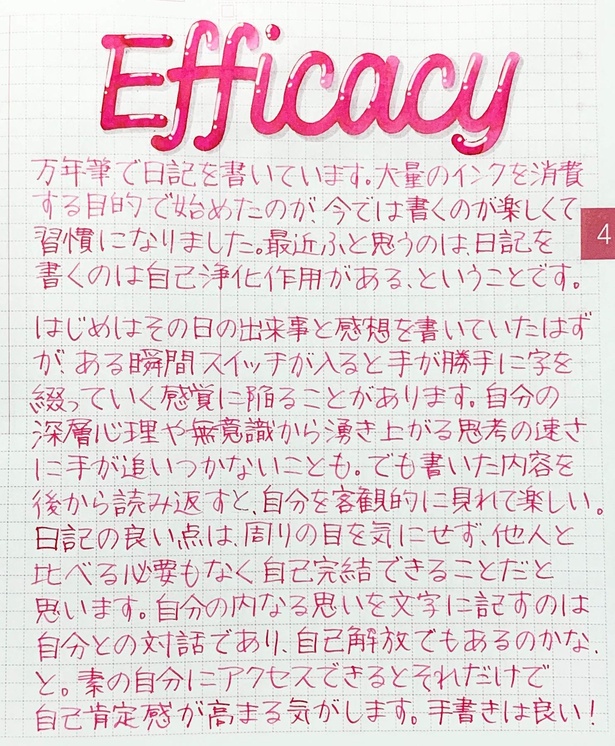 Efficacy
万年筆で日記を書いています。大量のインクを消費
する目的で始めたのが、今では書くのが楽しくて
習慣になりました。最近ふと思うのは、日記を
書くのは自己浄化作用がある、ということです。
4
はじめはその日の出来事と感想を書いていたはず
が、ある瞬間スイッチが入ると手が勝手に字を
綴っていく感覚に陥ることがあります。自分の
深層心理や無意識から湧き上がる思考の速さ
に手が追いつかないことも。でも書いた内容を
後から読み返すと、自分を客観的に見れて楽しい。
日記の良い点は、周りの目を気にせず、他人と
比べる必要もなく自己完結できることだと
思います。自分の内なる思いを文字に記すのは
自分との対話であり、自己解放でもあるのかな、
と。素の自分にアクセスできるとそれだけで
自己肯定感が高まる気がします。手書きは良い！